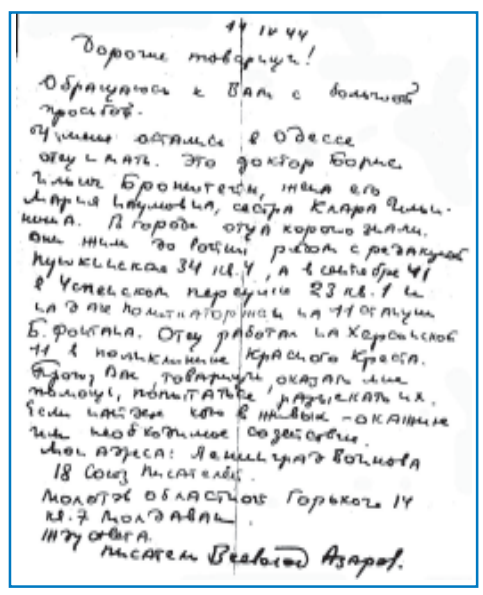 14 IV 44
Дорогие товарищи!
Обращаюсь к Вам с большой
просьбой.
У меня остались в Одессе
отец и мать. Это доктор Борис
Ильич Бронштейн, жена его
Мария Наумовна, сестра Клара Ильи-
нична. В городе отца хорошо знали.
Они жили до войны рядом с редакцией
Пушкинская 34 кв. 4, а в сентябре 41
в Успенском переулке 23 кв. 1 и
на даче политкаторжан на 11 станции
Б. Фонтана. Отец работал на Херсонской
11 в поликлинике Красного Креста.
Прошу Вас товарищи, оказать мне
помощь, попытаться разыскать их.
Если найдете кого в живых - окажите
им необходимое содействие.
Мои адреса: Ленинград Воинова
18 Союз писателей.
Молотов областной Горького 14
кв. 7 Молдаван
Жду ответа.
писатель Всеволод Азаров.